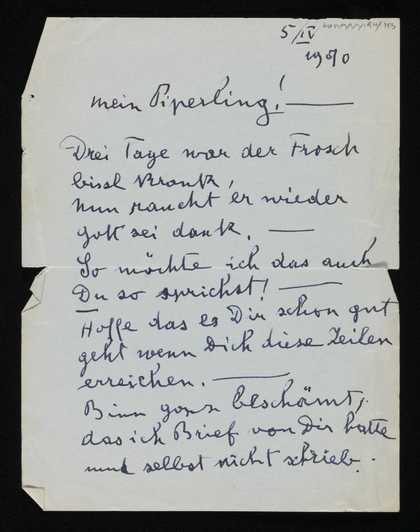 5/IV
1960
mein Piperling! —
Drei Tage war der Frosch
bissl krank,
Nun raucht er wieder
gott sei dank. —
So möchte ich das auch
Du so sprichst! —
Hoffe das es Dir schon gut
geht wenn Dich diese Zeilen
erreichen. —
Binn ganz beschämt,
das ich Brief von Dir hatte
und selbst nicht schrieb.